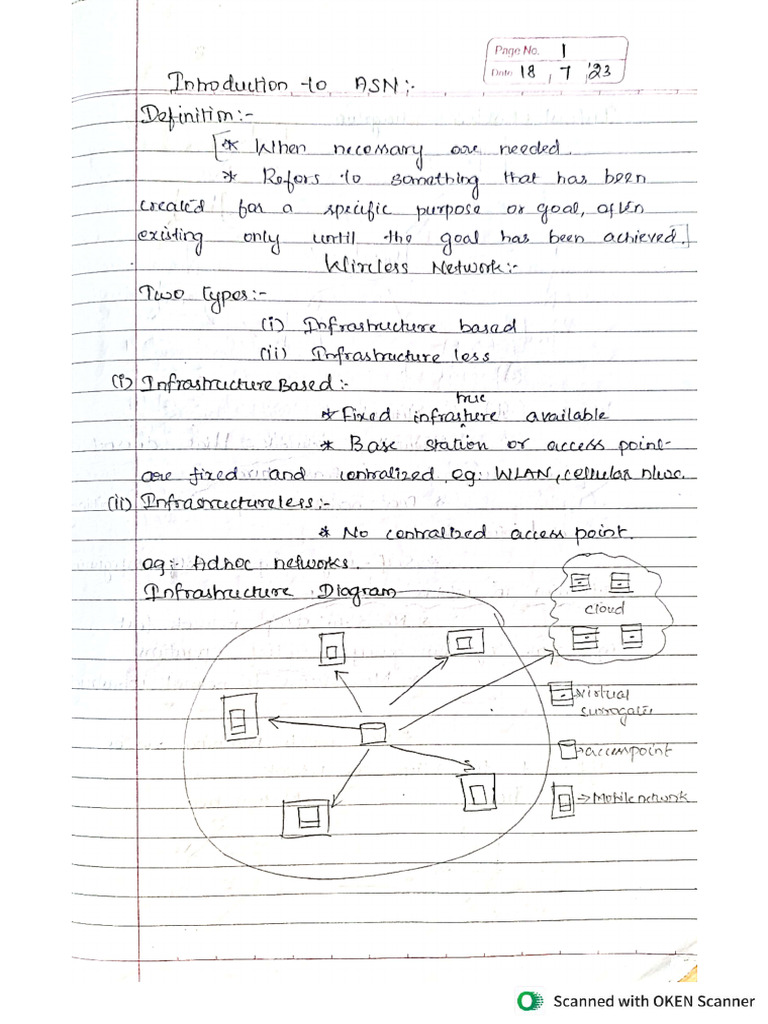 Page No. 1
Date 18, 7, '23
Introduction to ASN:-
Definition:-
[* When necessary are needed.
* Refers to something that has been
created for a specific purpose or goal, often
existing only until the goal has been achieved.]
Wireless Network:-
Two types:-
(i) Infrastructure based
(ii) Infrastructure less
(i) Infrastructure Based:-
truc
* Fixed infrasture available
* Base station or access point
are fixed and centralized, eg: WLAN, cellular
(ii) Infrastructureless:-
* No centralized access point.
eg:- Adhoc networks.
Infrastructure Diagram
cloud
→virtual
surrogates
→
→Mobile network
Scanned with OKEN Scanner